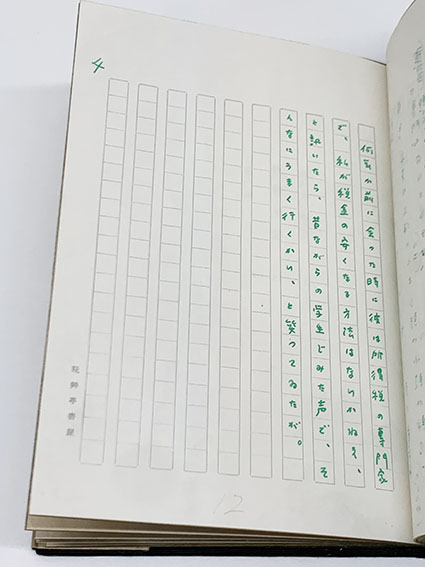 何年か前に会つた時に彼は所得税の専門家
で、私が税金の安くなる方法はないかねえ、
と訊いたら、昔ながらの学生じみた声で、そ
んなにうまく行くかい、と笑つてゐたが。
4
12